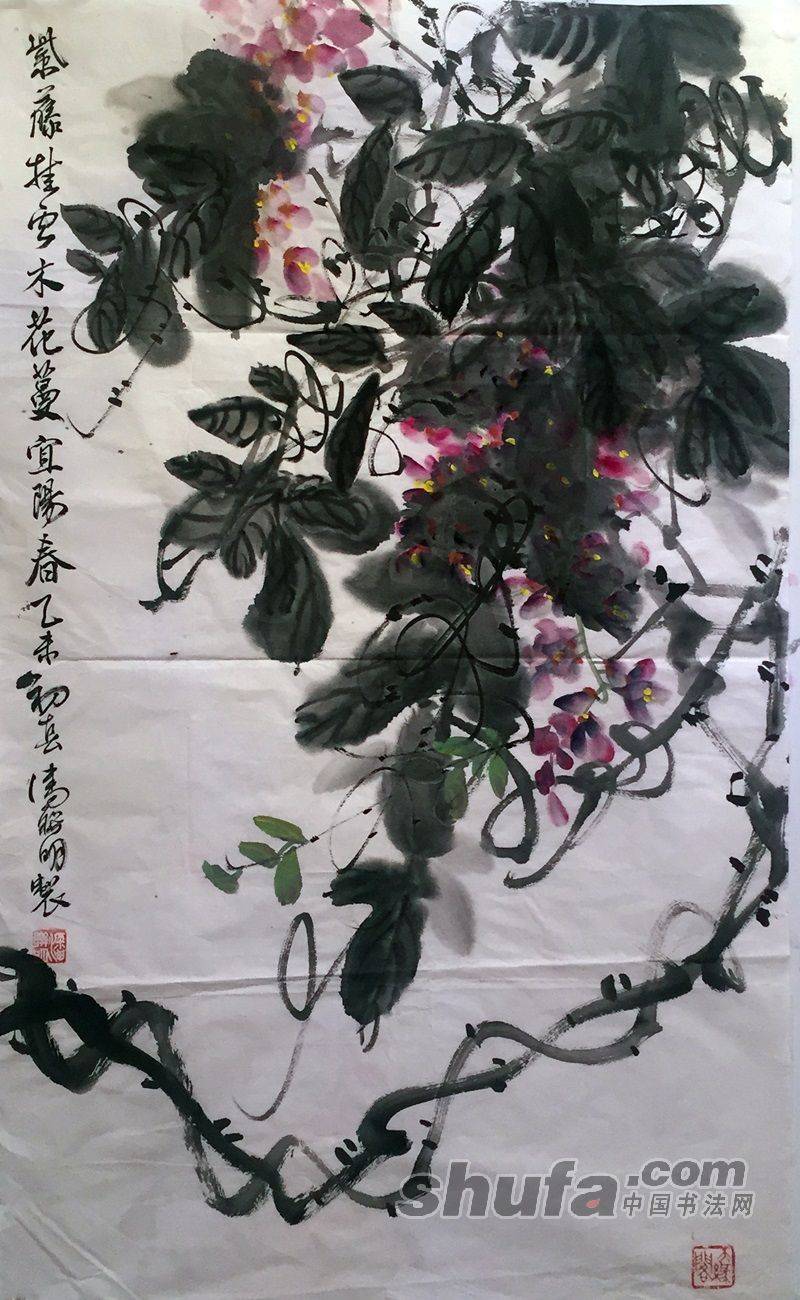 紫藤挂雲木花蔓宜陽春乙未初春清聆明製
shufa.com
中国书法网